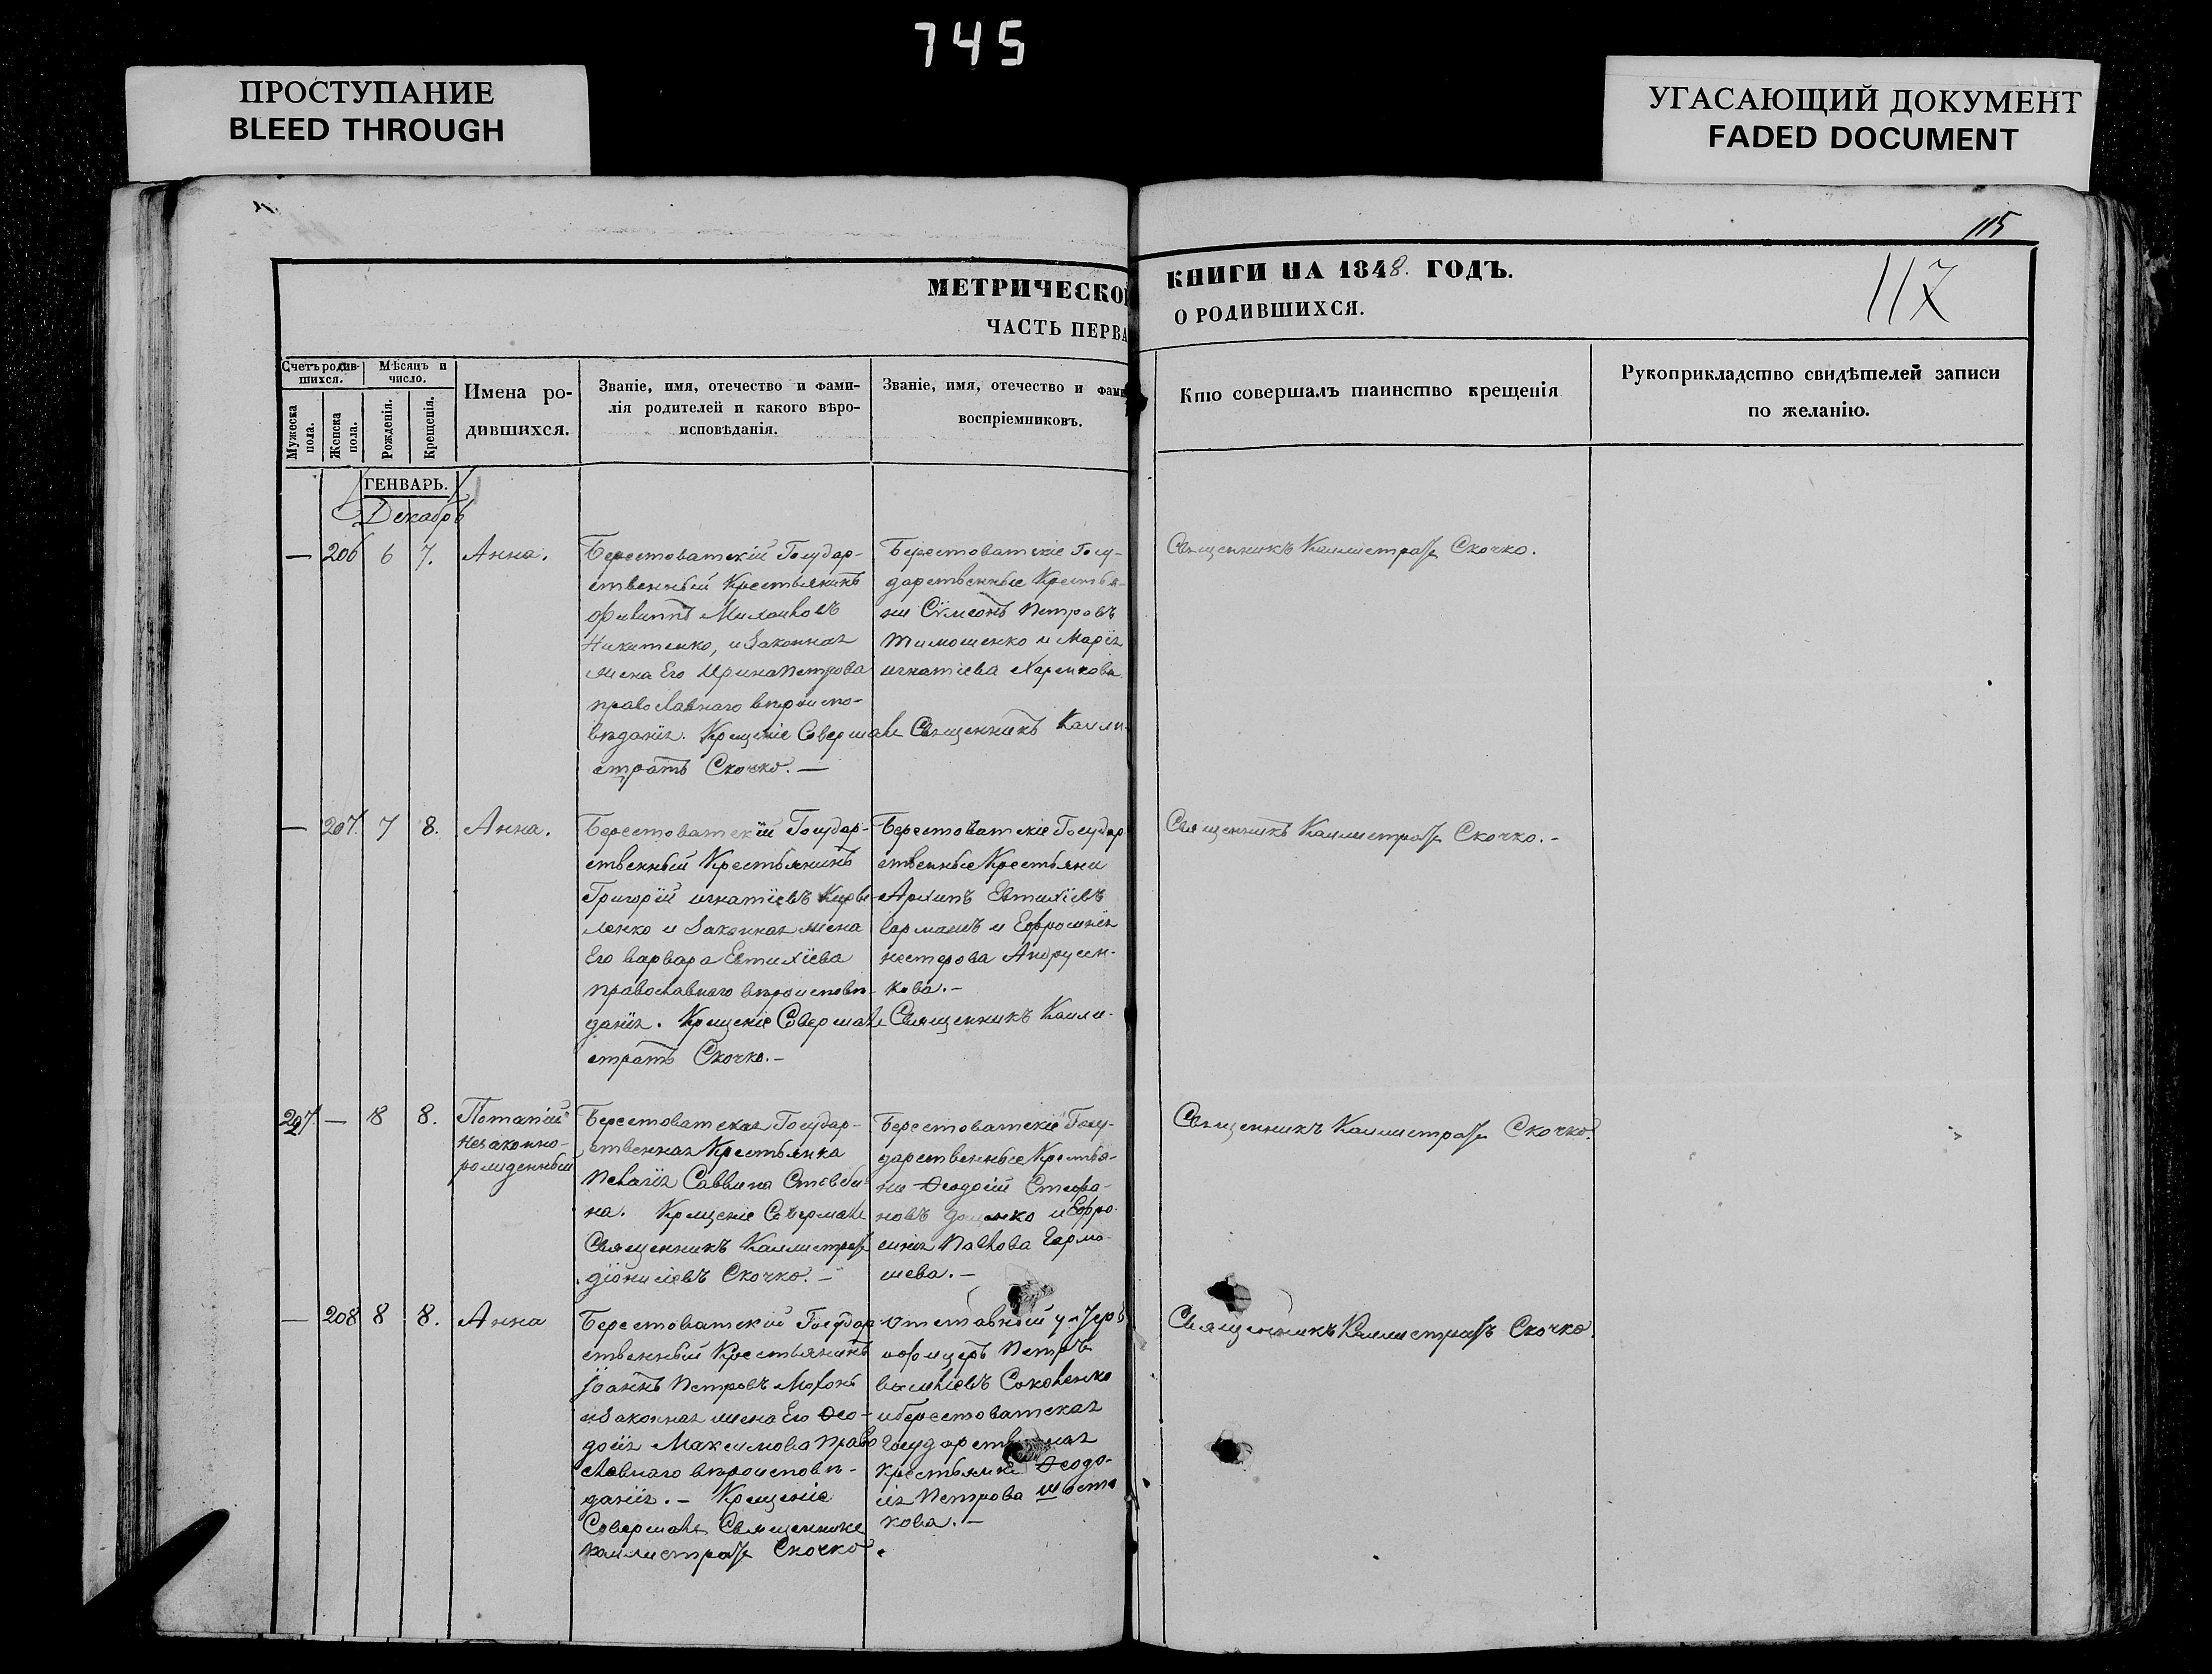 745
ПРОСТУПАНИЕ
BLEED THROUGH
УГАСАЮЩИЙ ДОКУМЕНТ
FADED DOCUMENT
115
117
МЕТРИЧЕСКО
КНИГИ НА 1848. ГОДЪ.
ЧАСТЬ ПЕРВА
О РОДИВШИХСЯ.
Счетъ родив-
шихся.
Мѣсяцъ и
число.
Мужеска
пола.
Женска
пола.
Рожденія.
Крещенія.
Имена ро-
дившихся.
Званіе, имя, отечество и фами-
лія родителей и какого вѣро-
исповѣданія.
Званіе, имя, отечество и фами
воспріемниковъ.
Кто совершалъ таинство крещенія
Рукоприкладство свидѣтелей записи
по желанію.
ГЕНВАРЬ.
Декабрь
— 206 6 7. Анна.
Берестоватскій Государ-
ственный Крестьянинъ
Филиппъ Михаиловъ
Никитенко, и Законная
жена Его Ирина Петрова
православнаго вѣроиспо-
вѣданія. Крещеніе Совершалъ Священникъ Калли-
стратъ Скочко. —
Берестоватскіе Госу-
дарственные Крестья-
ни Сѵмеонъ Петровъ
Тимошенко и Марія
игнатіева
Священникъ Каллистратъ Скочко.
— 207. 7 8. Анна.
Берестоватскій Государ-
ственный Крестьянинъ
Григорій игнатіевъ Кири-
ленко и Законная жена
Его варвара Евтихіева
православнаго вѣроисповѣ-
данія. Крещеніе Совершалъ Священникъ Калли-
стратъ Скочко. —
Берестоватскіе Государ
ственные Крестьяни
Архипъ Евтихіевъ
гармашъ и Ефросинія
нестерова Андрусен-
кова. —
Священникъ Каллистратъ Скочко. —
207. — 8 8. Потапій
незаконно-
рожденный
Берестоватская Государ-
ственная Крестьянка
Пелагія Саввина
на. Крещеніе Совершалъ
Священникъ Каллистратъ
діонисіевъ Скочко. —
Берестоватскіе Госу-
дарственные Крестья-
ни Ѳеодосій Стефа-
новъ и Ефро-
синія Павлова Гарма-
шева. —
Священникъ Каллистратъ Скочко.
— 208 8 8. Анна
Берестоватскій Государ
ственный Крестьянинъ
Іоаннъ Петровъ
и Законная жена Его Ѳео-
досія Максимова право
славнаго вѣроисповѣ-
данія. — Крещеніе
Совершалъ Священникъ
Каллистратъ Скочко.
Отставный унтеръ
офицеръ Петръ
васильевъ Соколенко
и берестоватская
Государственная
крестьянка Ѳеодо-
ія Петрова
кова. —
Священникъ Каллистратъ Скочко.